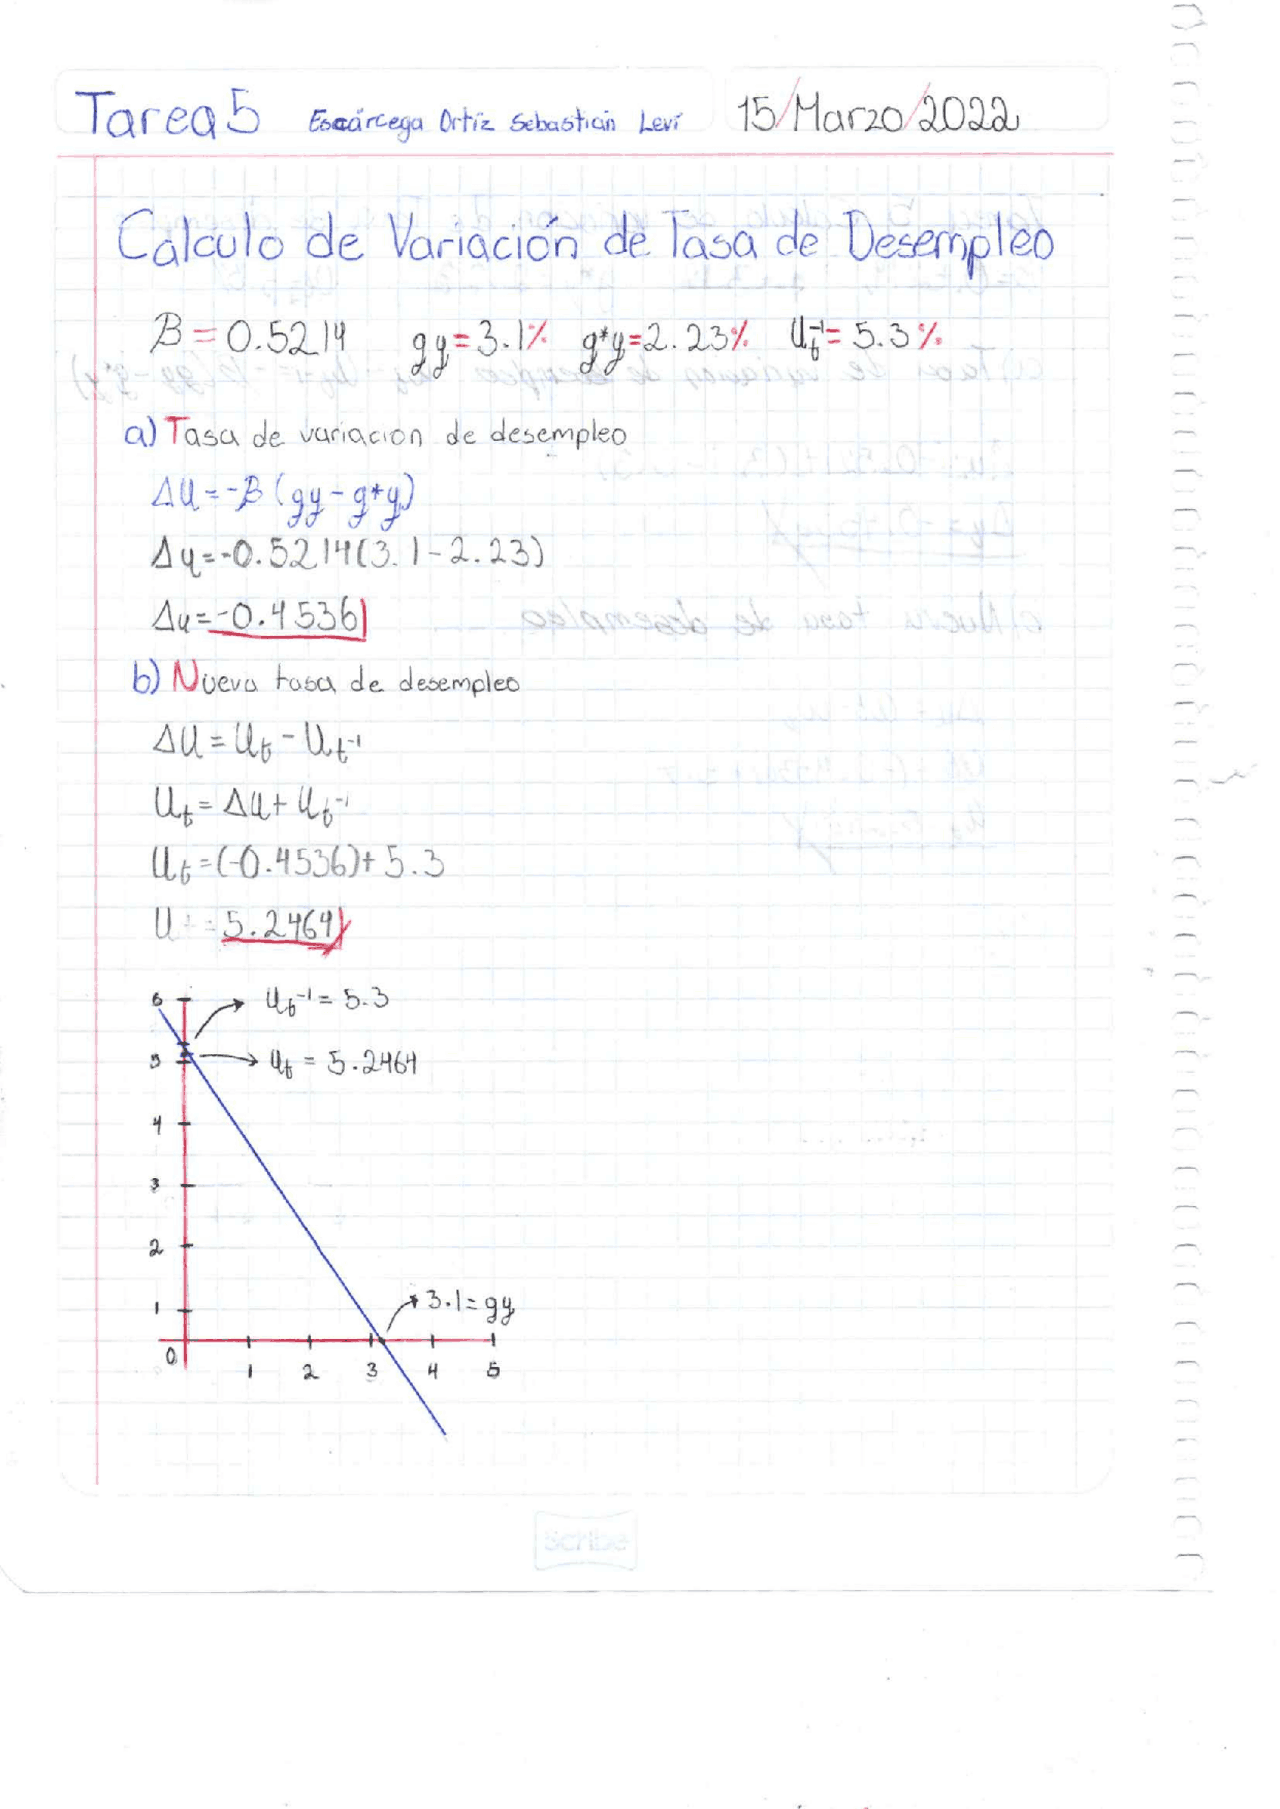 Tarea 5 Escárcega Ortiz Sebastian Levi 15/Marzo/2022
Cálculo de Variación de Tasa de Desempleo
B = 0.5214 gy=3.1% g*y=2.23% Ut⁻¹= 5.3%
a) Tasa de variacion de desempleo
ΔU=-B(gy-g*y)
Δy=-0.5214(3.1-2.23)
Δu=-0.4536
b) Nueva tasa de desempleo
ΔU = Ut - Ut⁻¹
Ut = ΔU + Ut⁻¹
Ut=(-0.4536)+5.3
Ut = 5.2464
6 Ut⁻¹= 5.3
5 Ut = 5.2464
4
3
2
1 3.1=gy
0 1 2 3 4 5
Scribe